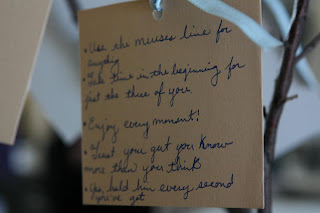 • Use the nurses line for
anything
• Take time in the beginning for
just the three of you.
• Enjoy every moment!
• Trust your gut you know
more than you think
• Yes, hold him every second
you've got